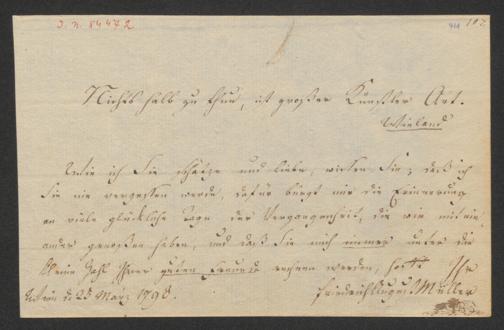 J. n. 84472
102
Nichts halb zu thun, ist großer Künstler Art.
Wieland
Wie ich Sie schätze und liebe, wissen Sie; daß ich
Sie nie vergessen werde, dafür bürgt mir die Erinnerung
an viele glückliche Tage der Vergangenheit, die wir mit ein-
ander genossen haben, und daß Sie mich immer unter die
kleine Zahl Ihrer guten Freunde rechnen werden, hofft Ihr
Wien d. 25 März 1798.
Friedrich August Müller